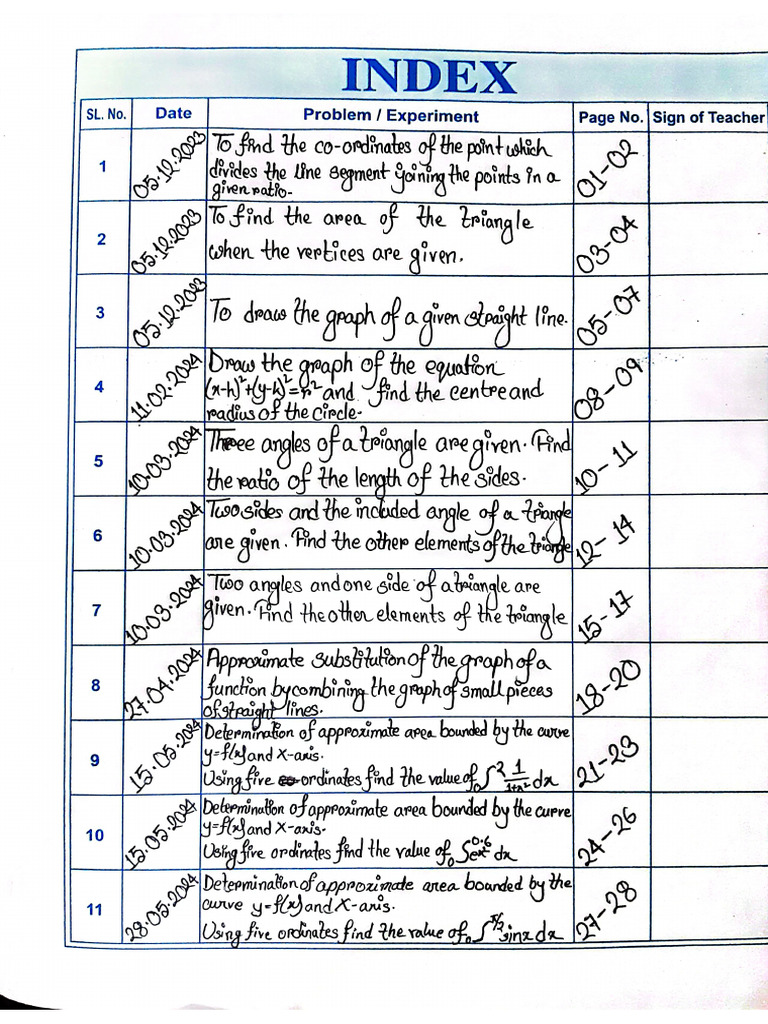 INDEX
SL. No. Date Problem / Experiment Page No. Sign of Teacher
1 05.12.2023 To find the co-ordinates of the point which
divides the line segment joining the points in a
given ratio. 01-02
2 05.12.2023 To find the area of the triangle
when the vertices are given. 03-04
3 05.12.2023 To draw the graph of a given straight line. 05-07
4 11.02.2024 Draw the graph of the equation
(x-h)²+(y-k)²=r² and find the centre and
radius of the circle. 08-09
5 10.03.2024 Three angles of a triangle are given. Find
the ratio of the length of the sides. 10-11
6 10.03.2024 Two sides and the included angle of a triangle
are given. Find the other elements of the triangle 12-14
7 10.03.2024 Two angles and one side of a triangle are
given. Find the other elements of the triangle 15-17
8 27.04.2024 Approximate substitution of the graph of a
function by combining the graph of small pieces
of straight lines. 18-20
9 15.05.2024 Determination of approximate area bounded by the curve
y=f(x) and X-axis.
Using five ordinates find the value of ₀∫² 1/(1+x²) dx 21-23
10 15.05.2024 Determination of approximate area bounded by the curve
y=f(x) and X-axis.
Using five ordinates find the value of ₀∫^0.6 e^x² dx 24-26
11 28.05.2024 Determination of approximate area bounded by the
curve y=f(x) and X-axis.
Using five ordinates find the value of ₀∫^π/2 sinx dx 27-28